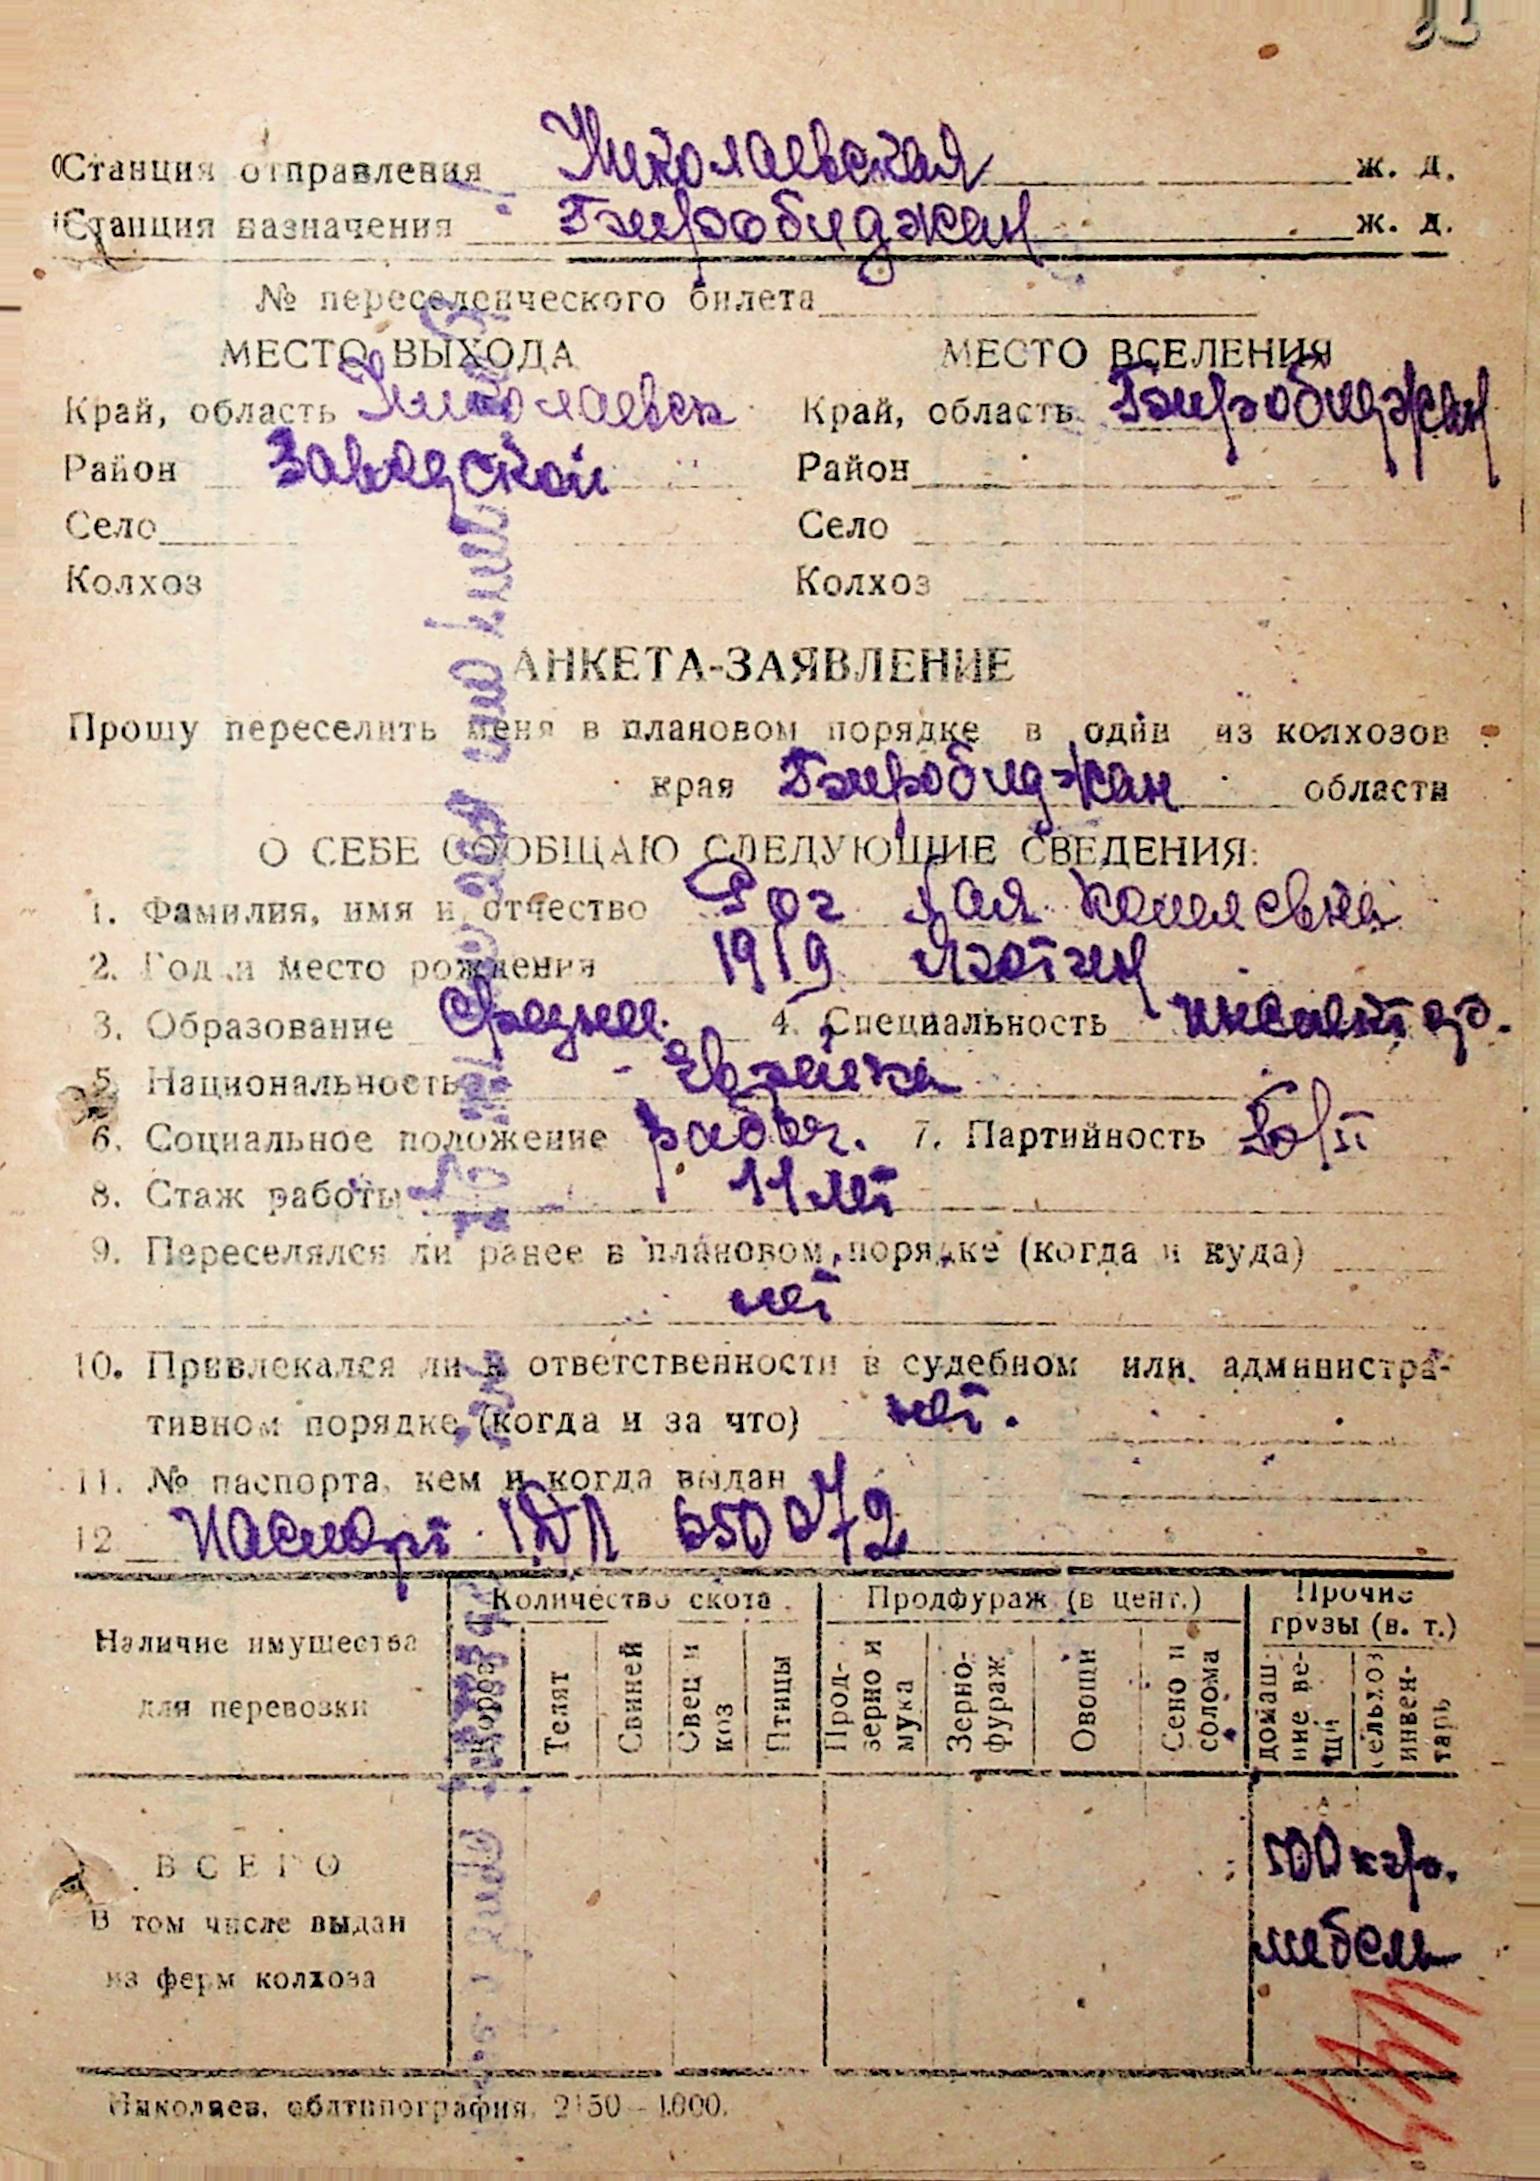 Станция отправления Николаевская ж. д.
Станция назначения Биробиджан ж. д.
№ переселенческого билета
МЕСТО ВЫХОДА МЕСТО ВСЕЛЕНИЯ
Край, область Николаевск Край, область Биробиджан
Район Заводской Район
Село Село
Колхоз Колхоз
АНКЕТА-ЗАЯВЛЕНИЕ
Прошу переселить меня в плановом порядке в один из колхозов
края Биробиджан области
О СЕБЕ СООБЩАЮ СЛЕДУЮЩИЕ СВЕДЕНИЯ:
1. Фамилия, имя и отчество Рог
2. Год и место рождения 1919
3. Образование среднее 4. Специальность
5. Национальность - Еврейка
6. Социальное положение рабоч. 7. Партийность б/п
8. Стаж работы 11 лет
9. Переселялся ли ранее в плановом порядке (когда и куда)
нет
10. Привлекался ли к ответственности в судебном или администра-
тивном порядке (когда и за что) нет.
11. № паспорта, кем и когда выдан
12 Паспорт 650072
Наличие имущества для перевозки
Количество скота
Продфураж (в цент.)
Прочие грузы (в. т.)
Коров
Телят
Свиней
Овец и коз
Птицы
Прод-зерно и мука
Зерно-фураж
Овощи
Сено и солома
домаш-ние ве-щи
сельхоз инвен-тарь
ВСЕГО
500 кгр.
В том числе выдан
мебель
из ферм колхоза
Николаев, облтипография 2150—1.000.